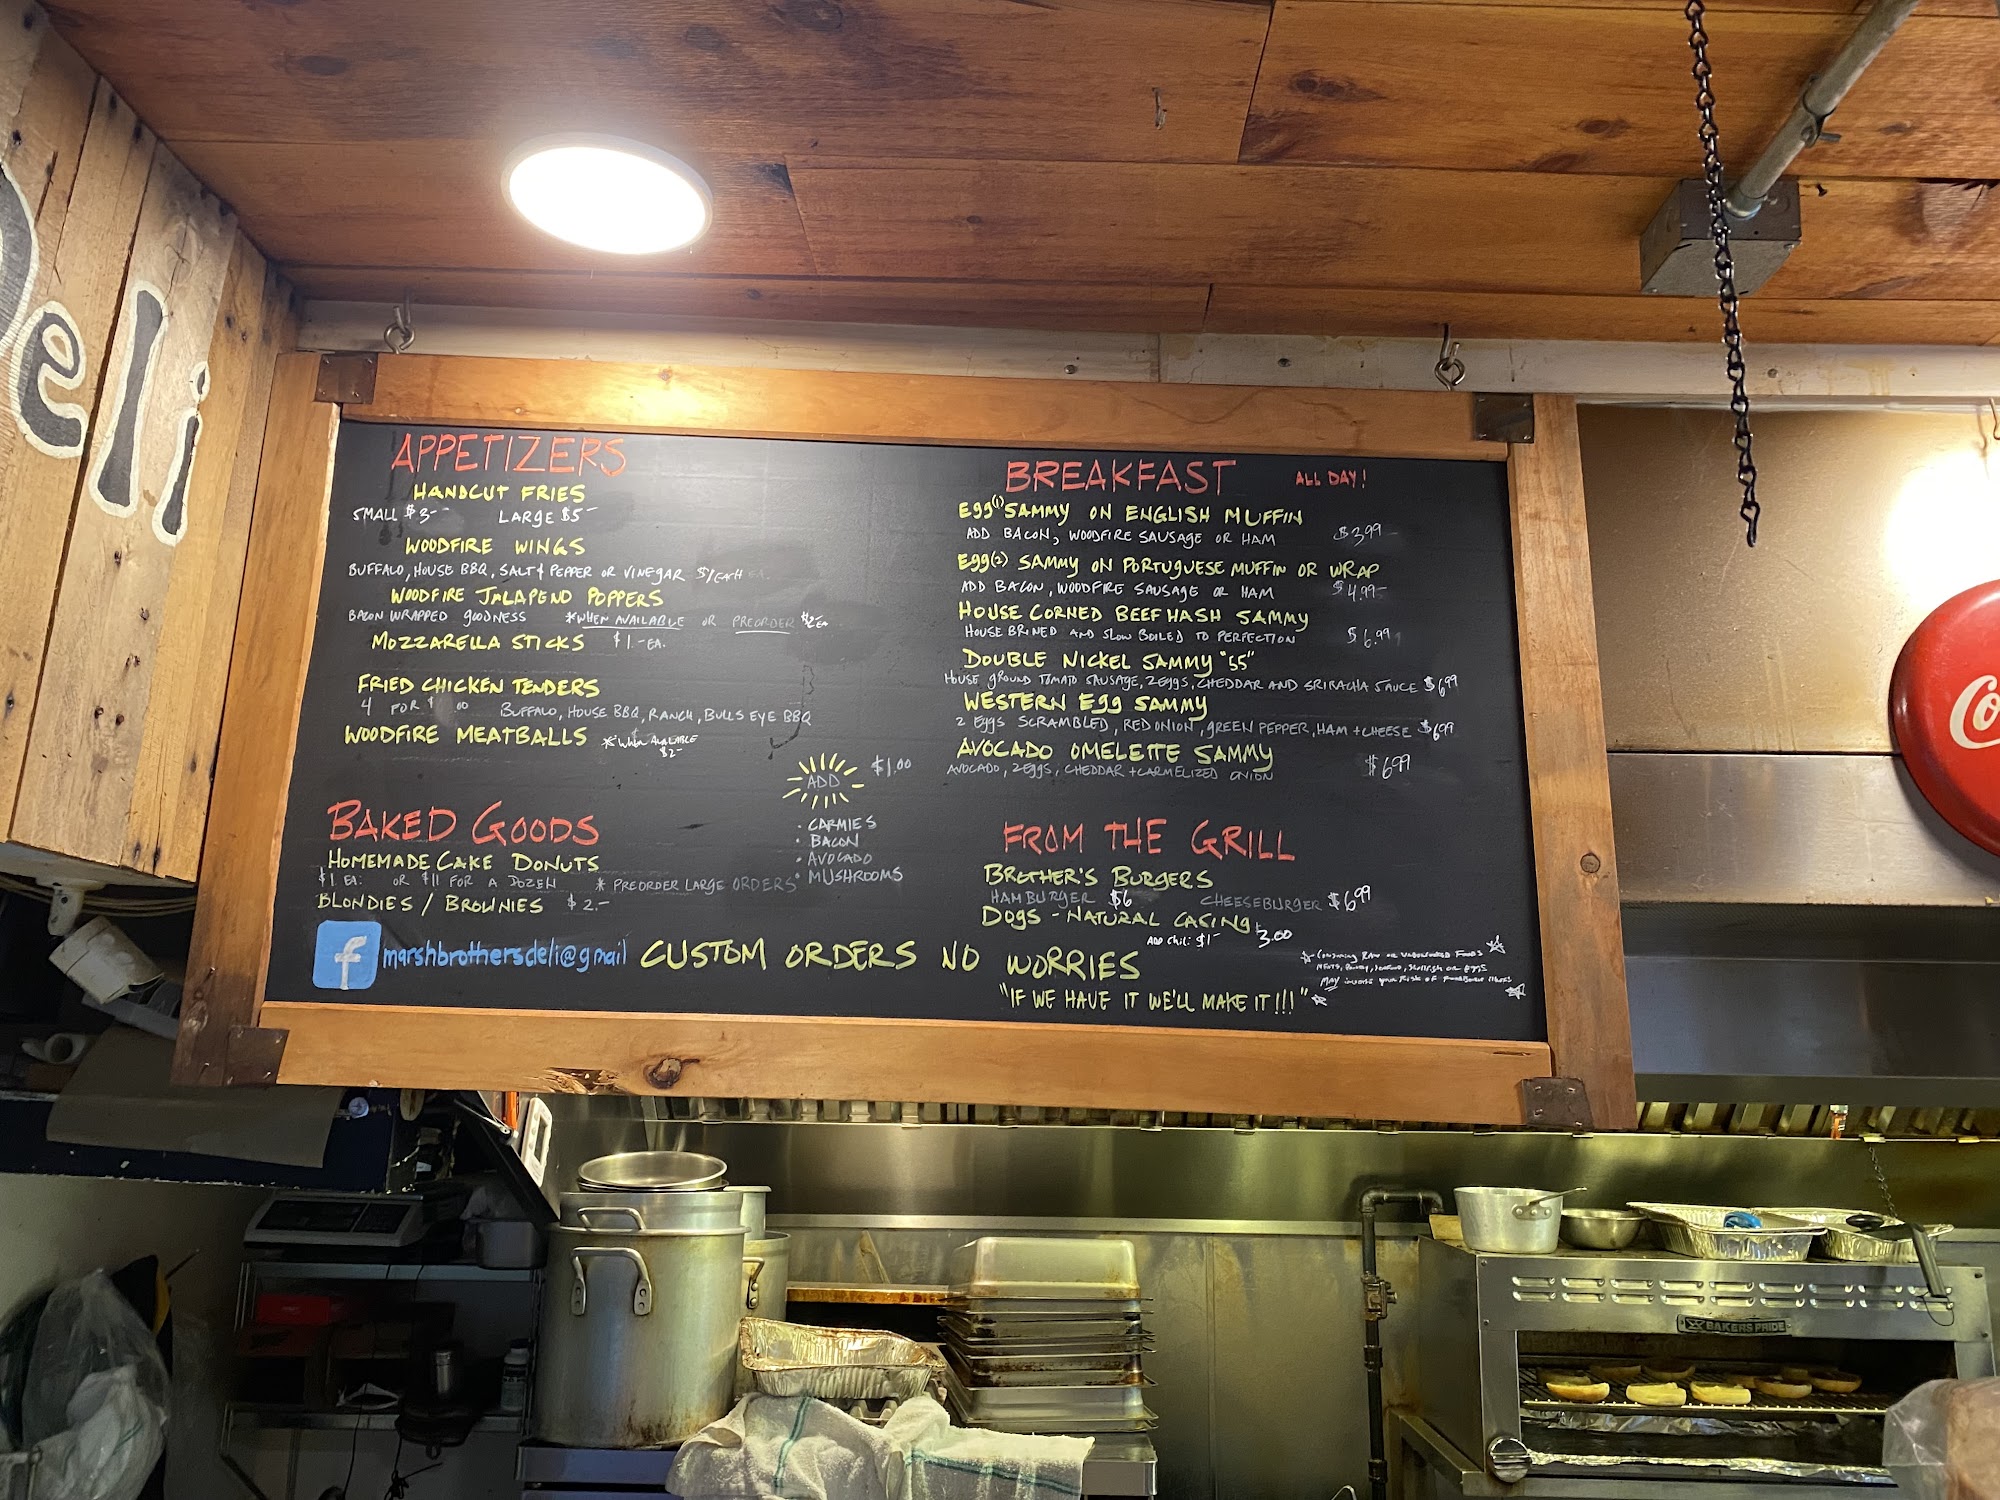 Deli
APPETIZERS
HANDCUT FRIES
SMALL $3- LARGE $5-
WOODFIRE WINGS
BUFFALO, HOUSE BBQ, SALT & PEPPER OR VINEGAR $1 EACH
WOODFIRE JALAPENO POPPERS
BACON WRAPPED GOODNESS *WHEN AVAILABLE OR PREORDER $2- EA
MOZZARELLA STICKS $1.- EA.
FRIED CHICKEN TENDERS
4 FOR $ 00 BUFFALO, HOUSE BBQ, RANCH, BULLS EYE BBQ
WOODFIRE MEATBALLS *WHEN AVAILABLE
$2-
ADD $1.00
• CARMIES
• BACON
• AVOCADO
• MUSHROOMS
BAKED GOODS
HOMEMADE CAKE DONUTS
$1 EA. OR $11 FOR A DOZEN * PREORDER LARGE ORDERS
BLONDIES / BROWNIES $2.-
BREAKFAST ALL DAY!
Egg(1) SAMMY ON ENGLISH MUFFIN
ADD BACON, WOODFIRE SAUSAGE OR HAM $3.99
Egg(2) SAMMY ON PORTUGUESE MUFFIN OR WRAP
ADD BACON, WOODFIRE SAUSAGE OR HAM $4.99-
HOUSE CORNED BEEF HASH SAMMY
HOUSE BRINED AND SLOW BOILED TO PERFECTION $6.99
DOUBLE NICKEL SAMMY "55"
HOUSE GROUND TOMATO SAUSAGE, 2 EGGS, CHEDDAR AND SRIRACHA SAUCE $6.99
WESTERN Egg SAMMY
2 Eggs SCRAMBLED, RED ONION, GREEN PEPPER, HAM + CHEESE $6.99
AVOCADO OMELETTE SAMMY
AVOCADO, 2 Eggs, CHEDDAR + CARMELIZED ONION $6.99
FROM THE GRILL
BROTHER'S BURGERS
HAMBURGER $6 CHEESEBURGER $6.99
DOGS - NATURAL CASING
ADD Chili $1- 3.00
f marshbrothersdeli@gmail CUSTOM ORDERS NO WORRIES
"IF WE HAVE IT WE'LL MAKE IT!!!"
* Consuming RAW or Undercooked Foods
MEATS, Poultry, Seafood, Shellfish or Eggs
MAY increase your Risk of Foodborne Illness
Co
BAKERS PRIDE